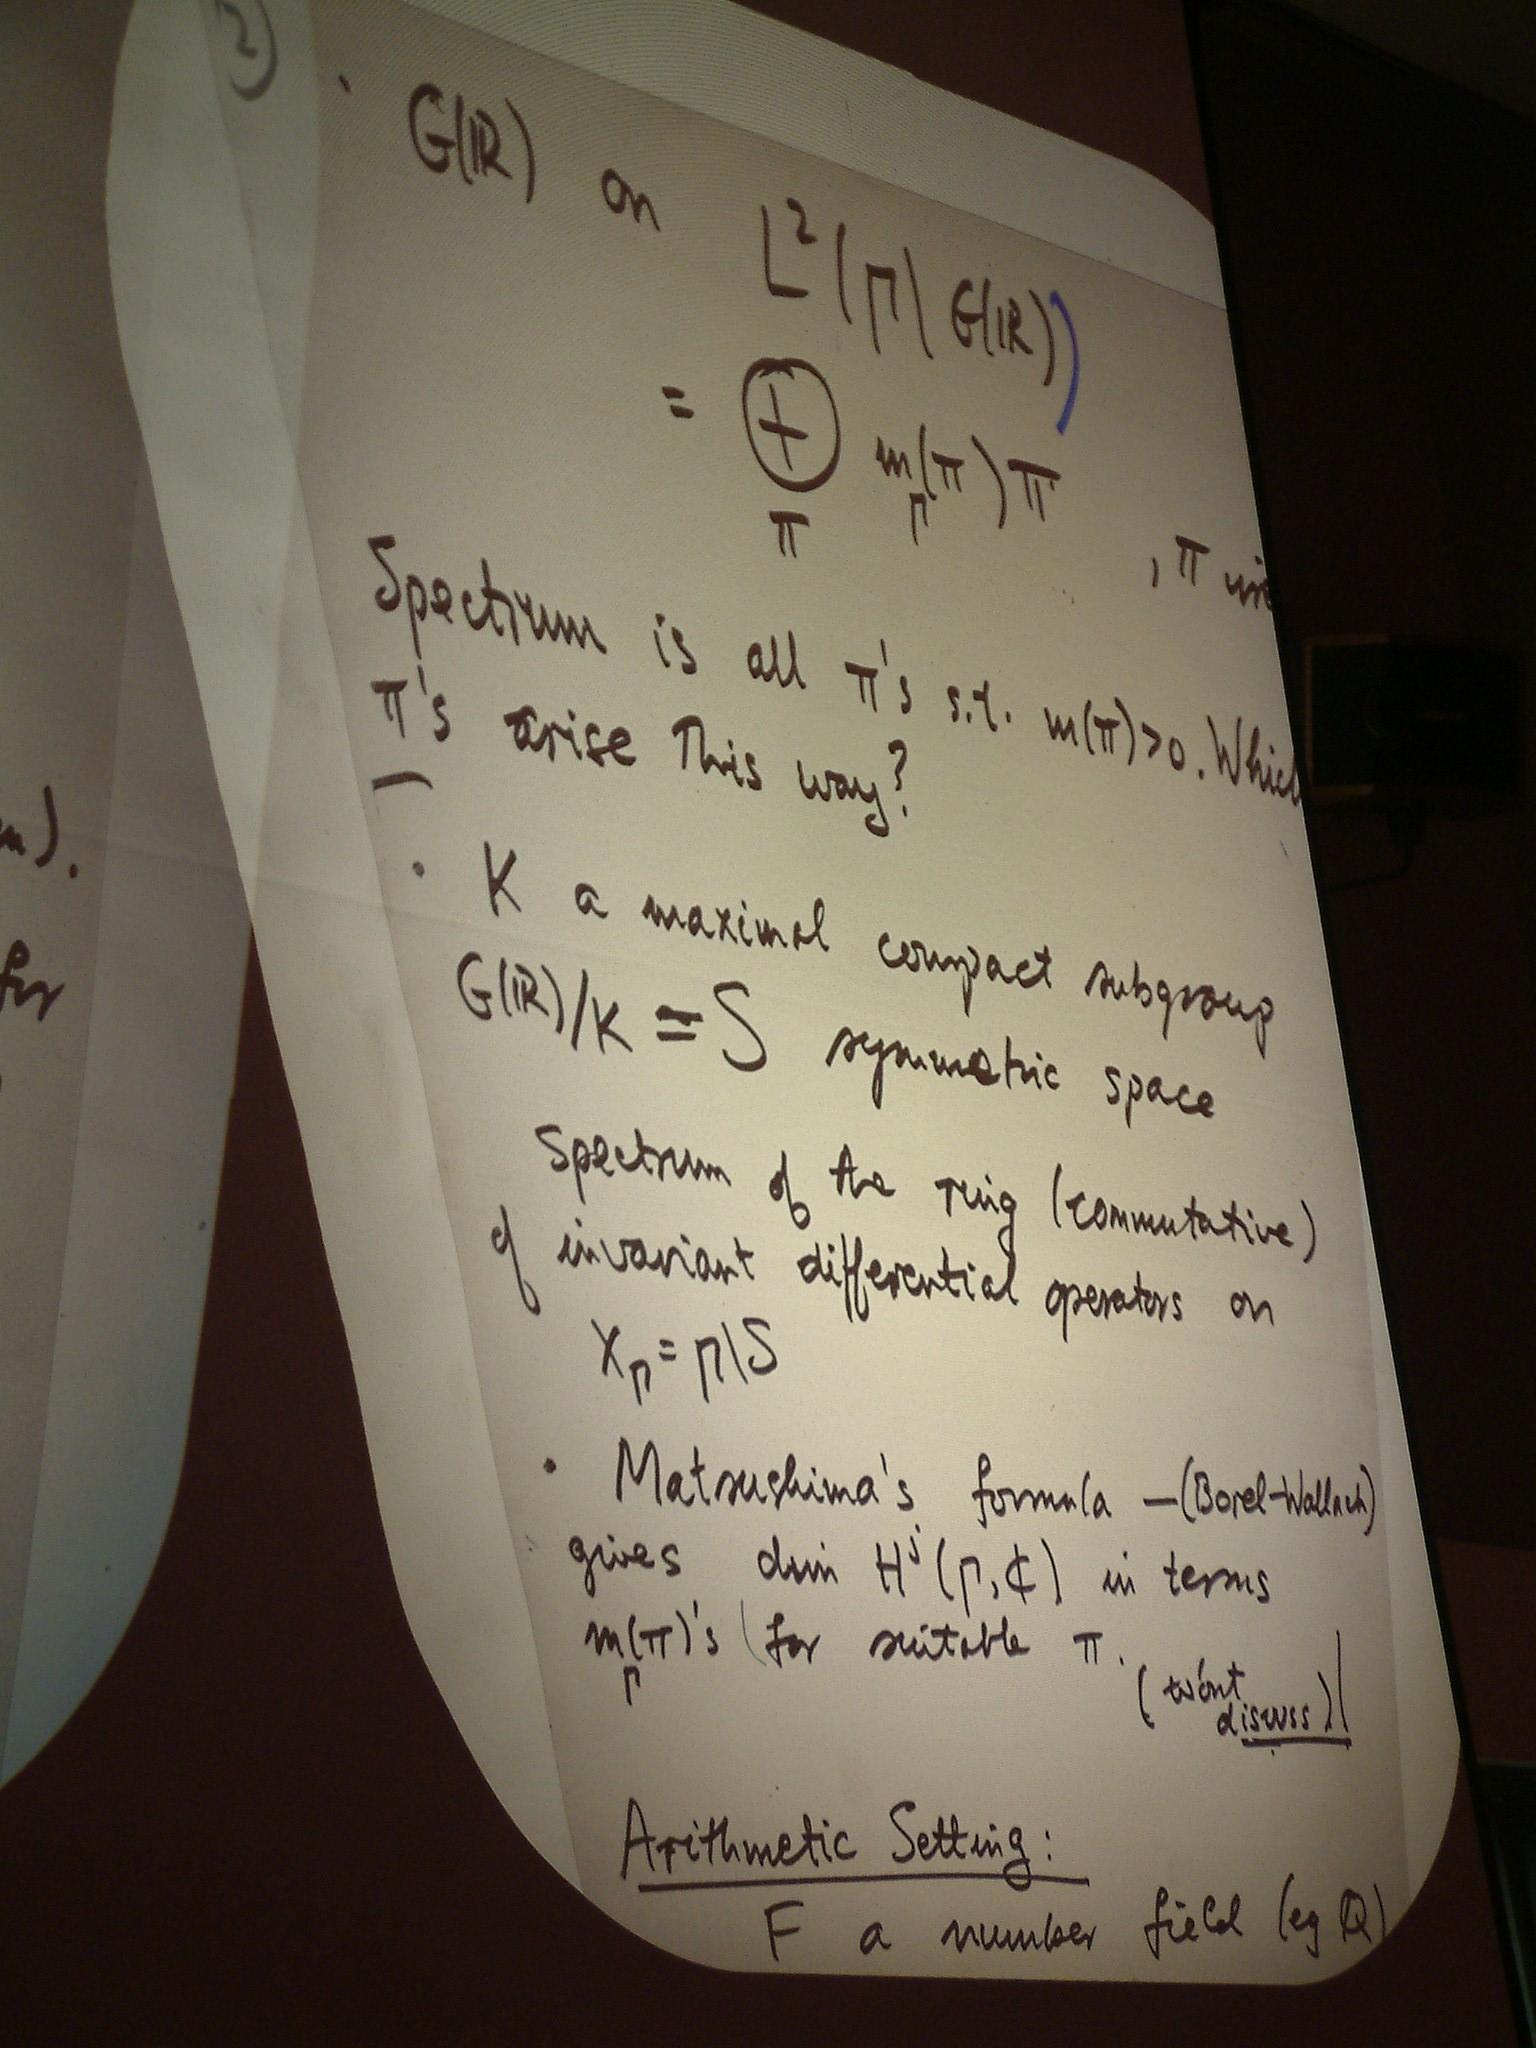 2
· G(ℝ) on L²(Γ\G(ℝ))
= ⊕ m_Γ(π) π
π
, π
Spectrum is all π's s.t. m(π)>0. Which
π's arise This way?
· K a maximal compact subgroup
G(ℝ)/K = S symmetric space
Spectrum of the ring (commutative)
of invariant differential operators on
X_Γ = Γ\S
· Matsushima's formula –(Borel-Wallach)
gives dim Hʲ(Γ,ℂ) in terms
m_Γ(π)'s (for suitable π.
(won't
discuss)
Arithmetic Setting:
F a number field (eg ℚ)
).
for